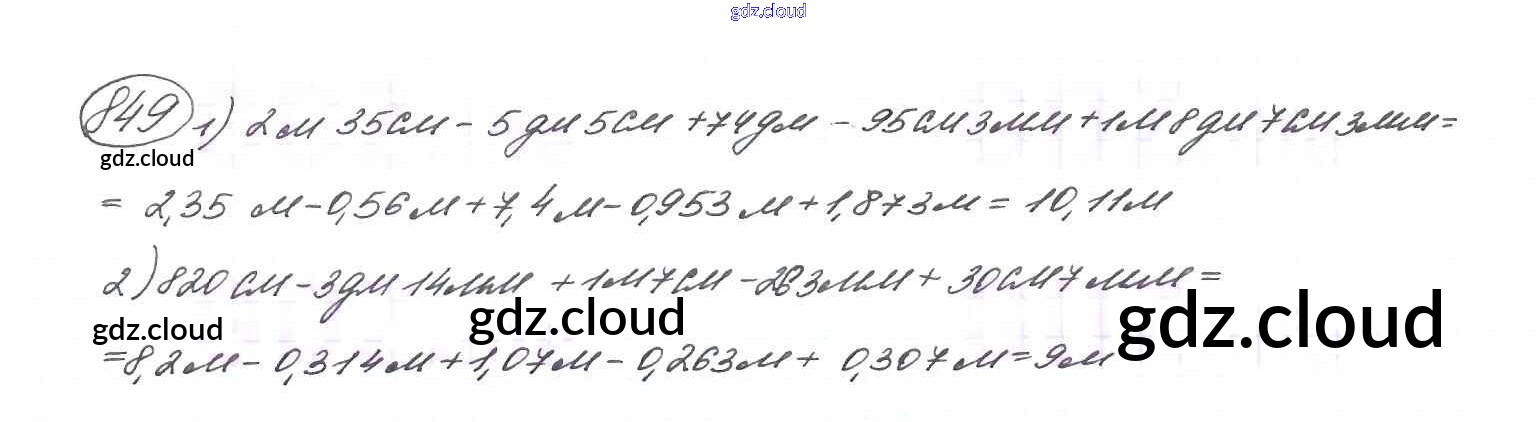 gdz.cloud
849 1) 2м 35см - 5дм 5см + 74дм - 95см 3мм + 1м 8дм 7см 3мм =
gdz.cloud
= 2,35 м - 0,56м + 7,4м - 0,953м + 1,873м = 10,11м
2) 820см - 3дм 14мм + 1м 7см - 263мм + 30см 7мм =
gdz.cloud gdz.cloud gdz.cloud
= 8,2м - 0,314м + 1,07м - 0,263м + 0,307м = 9м